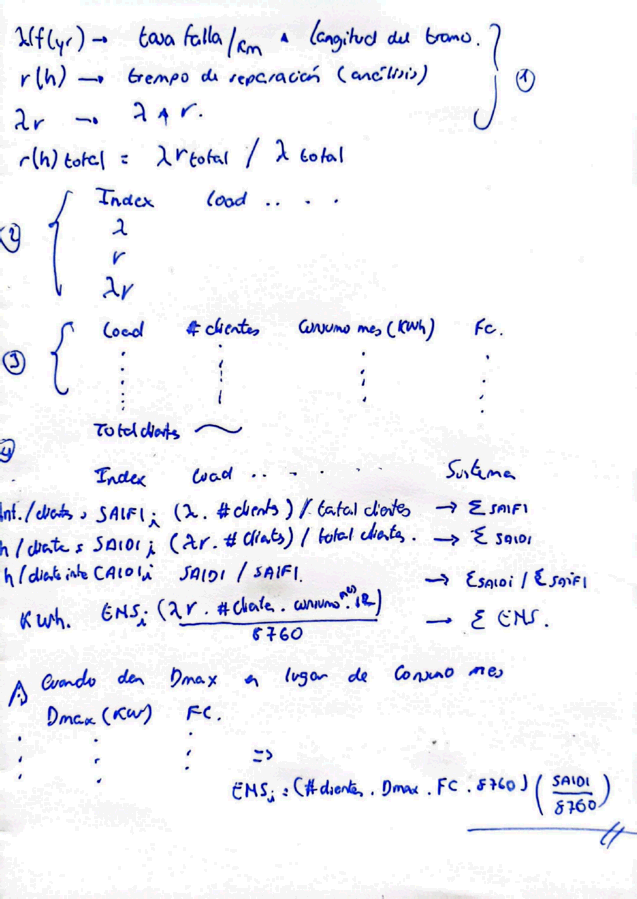 λ(f/yr) → tasa falla/km * longitud del tramo.
r(h) → tiempo de reparación (análisis)
λr → λ * r.
①
r(h) total = λr total / λ total
② Index load .. . .
λ
r
λr
③ Load # clientes Consumo mes (KWh) Fc.
Total clients
4 Index Load .. . . . Sistema
Int./clients : SAIFI i (λ. # clients) / total clientes → Σ SAIFI
h/cliente : SAIDI i (λr. # clients) / total clientes. → Σ SAIDI
h/cliente inte CAIDI i SAIDI / SAIFI. → Σ SAIDI / Σ SAIFI
KWh. ENS i (λr . # cliente . consumo mes . 12) / 8760 → Σ ENS.
Cuando den Dmax en lugar de Consumo mes
Dmax (KW) FC.
=>
ENS i : (# clientes . Dmax . FC . 8760) (SAIDI / 8760)